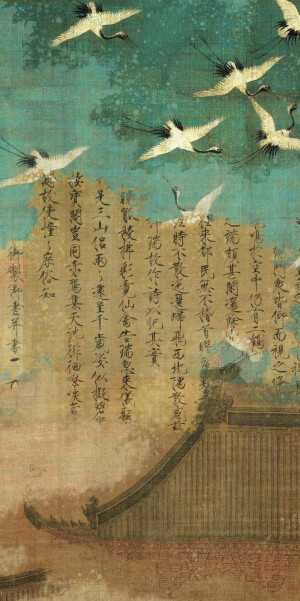 門眾皆仰而視之倏
空中仍有二鶴
之端頗甚閑適餘
往來都民無不稽首瞻望
經時不散迤邐歸飛西北隅散感茲
祥瑞故作詩以紀其實
觚稜拂彩霓仙禽告瑞忽來儀飄
元是三山侶兩々還呈千歲姿似擬碧鸞
棲寶閣豈同赤雁集天池徘徊嘹唳當丹
闕故使憧々庶俗知
御製御畫并書